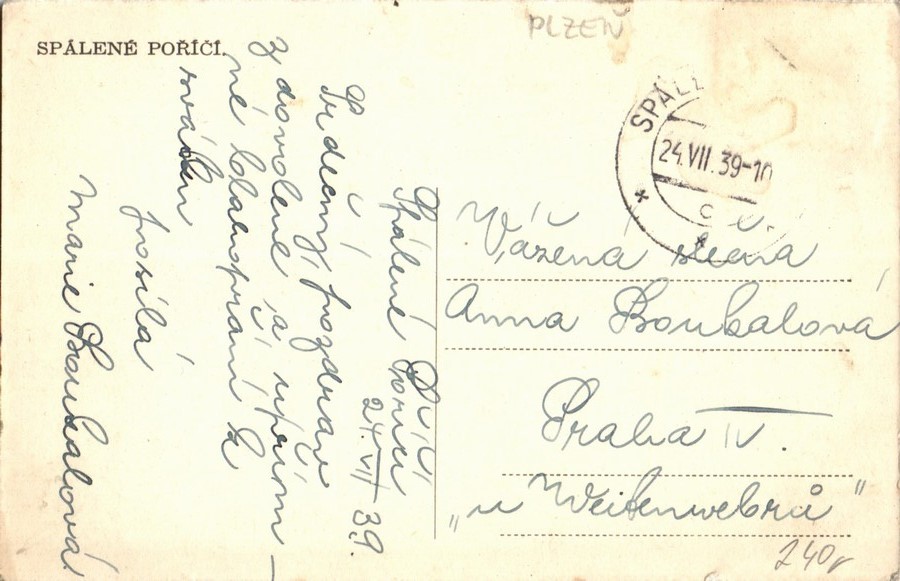 SPÁLENÉ POŘÍČÍ.
PLZEŇ
SPÁLE
24.VII.39-10
Spálené Poříčí
24.VII 39.
Srdečný pozdrav
z dovolené a upřím-
né blahopřání k
svátku
posílá
Marie Boukalová
Vážená slečna
Anna Boukalová
Praha IV.
„u Weitenwebrů"
240,-